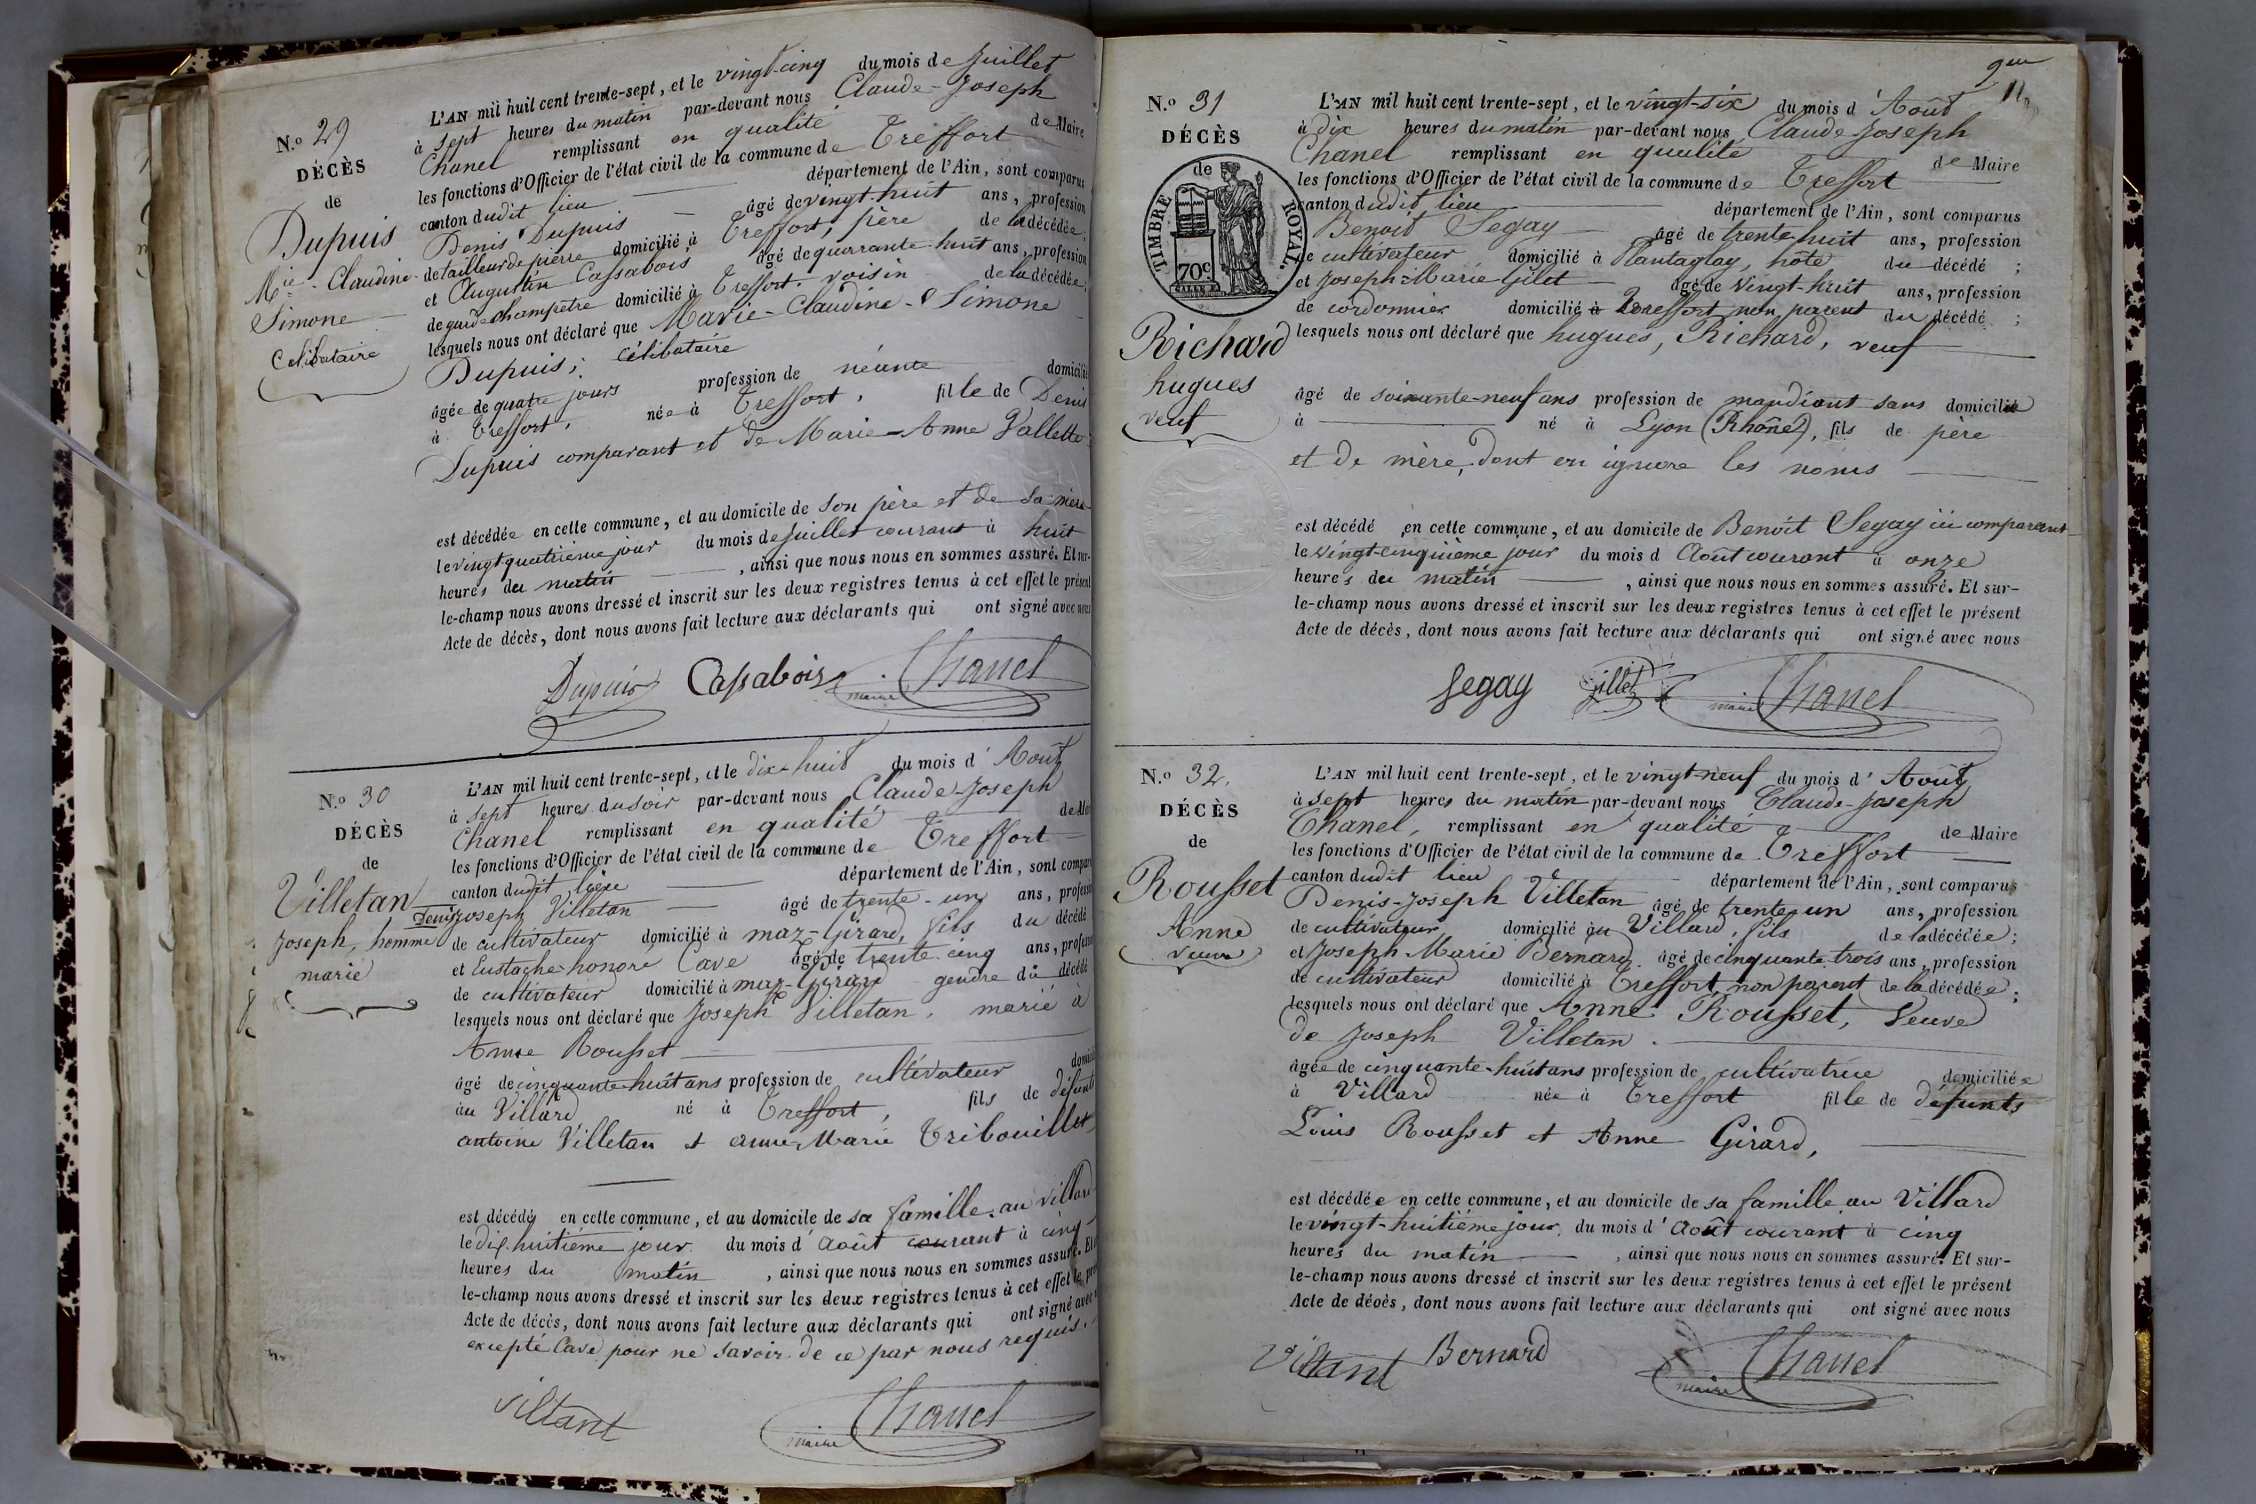 N.o 29
DÉCÈS
de
Dupuis
Mie-Claudine
Simone
Célibataire
L'AN mil huit cent trente-sept, et le vingt-cinq du mois de Juillet
à sept heures du matin par-devant nous Claude-Joseph
Chanel remplissant en qualité de Maire
les fonctions d'Officier de l'état civil de la commune de Treffort
canton dudit lieu département de l'Ain, sont comparus
Denis Dupuis âgé de vingt-huit ans, profession
de tailleur de pierre domicilié à Treffort, père de la décédée,
et Augustin Cassabois âgé de quarrante-huit ans, profession
de garde champetre domicilié à Treffort. voisin de la décédée;
lesquels nous ont déclaré que Marie-Claudine-Simone
Dupuis, célibataire
âgée de quatre jours profession de néante domicilié
à Treffort, née à Treffort, fille de Denis
Dupuis comparant et de Marie-Anne Vallette
est décédée en cette commune, et au domicile de son père et de sa mère
le vingt quatrième jour du mois de Juillet courant à huit
heures du matin, ainsi que nous nous en sommes assuré. Et sur-
le-champ nous avons dressé et inscrit sur les deux registres tenus à cet effet le présent
Acte de décès, dont nous avons fait lecture aux déclarants qui ont signé avec nous
Dupuis Cassabois maire Chanel
N.o 30
DÉCÈS
de
Villetan
Joseph, homme
marié
L'AN mil huit cent trente-sept, et le dix-huit du mois d'Août
à sept heures du soir par-devant nous Claude-Joseph
Chanel remplissant en qualité de Maire
les fonctions d'Officier de l'état civil de la commune de Treffort
canton dudit lieu département de l'Ain, sont comparus
Denis Joseph Villetan âgé de trente-un ans, profession
de cultivateur domicilié à maz-Girard, fils du décédé
et Eustache honoré Cave âgé de trente cinq ans, profession
de cultivateur domicilié à maz-Girard gendre du décédé
lesquels nous ont déclaré que Joseph Villetan, marié à
Anne Rousset
âgé de cinquante-huit ans profession de cultivateur domicilié
au Villard né à Treffort, fils de défunts
antoine Villetan et anne-Marie Tribouillet
est décédé en cette commune, et au domicile de sa famille au villard
le dix-huitième jour du mois d'Août courant à cinq
heures du matin, ainsi que nous nous en sommes assuré. Et
le-champ nous avons dressé et inscrit sur les deux registres tenus à cet effet le
Acte de décès, dont nous avons fait lecture aux déclarants qui ont signé avec
excepté Cave pour ne savoir de ce par nous requis.
Viltant maire Chanel
9me
11
N.o 31
DÉCÈS
de
TIMBRE ROYAL.
70c
Richard
hugues
veuf
L'AN mil huit cent trente-sept, et le vingt-six du mois d'Août
à dix heures du matin par-devant nous Claude-Joseph
Chanel remplissant en qualité de Maire
les fonctions d'Officier de l'état civil de la commune de Treffort
canton dudit lieu département de l'Ain, sont comparus
Benoit Segay âgé de trente huit ans, profession
de cultivateur domicilié à Plantaglay, hôte du décédé;
et Joseph-Marie Gilet âgé de vingt-huit ans, profession
de cordonnier domicilié à Treffort non parent du décédé;
lesquels nous ont déclaré que hugues, Richard, veuf
âgé de soixante-neuf ans profession de mandiant sans domicilié
à né à Lyon (Rhône), fils de père
et de mère, dont on ignore les noms
est décédé en cette commune, et au domicile de Benoît Segay ici comparant
le vingt-cinquième jour du mois d'Août courant à onze
heures du matin, ainsi que nous nous en sommes assuré. Et sur-
le-champ nous avons dressé et inscrit sur les deux registres tenus à cet effet le présent
Acte de décès, dont nous avons fait lecture aux déclarants qui ont signé avec nous
Segay Gillet maire Chanel
N.o 32.
DÉCÈS
de
Rousset
Anne
veuve
L'AN mil huit cent trente-sept, et le vingt-neuf du mois d'Août
à sept heures du matin par-devant nous Claude-Joseph
Chanel, remplissant en qualité de Maire
les fonctions d'Officier de l'état civil de la commune de Treffort
canton dudit lieu département de l'Ain, sont comparus
Denis-Joseph Villetan âgé de trente-un ans, profession
de cultivateur domicilié au Villard, fils de la décédée;
et Joseph Marie Bernard âgé de cinquante trois ans, profession
de cultivateur domicilié à Treffort, non parent de la décédée;
lesquels nous ont déclaré que Anne Rousset, Veuve
de Joseph Villetan.
âgée de cinquante-huit ans profession de cultivatrice domiciliée
à Villard née à Treffort fille de défunts
Louis Rousset et Anne Girard,
est décédée en cette commune, et au domicile de sa famille au Villard
le vingt-huitième jour du mois d'Août courant à cinq
heures du matin, ainsi que nous nous en sommes assuré. Et sur-
le-champ nous avons dressé et inscrit sur les deux registres tenus à cet effet le présent
Acte de décès, dont nous avons fait lecture aux déclarants qui ont signé avec nous
Viltant Bernard maire Chanel